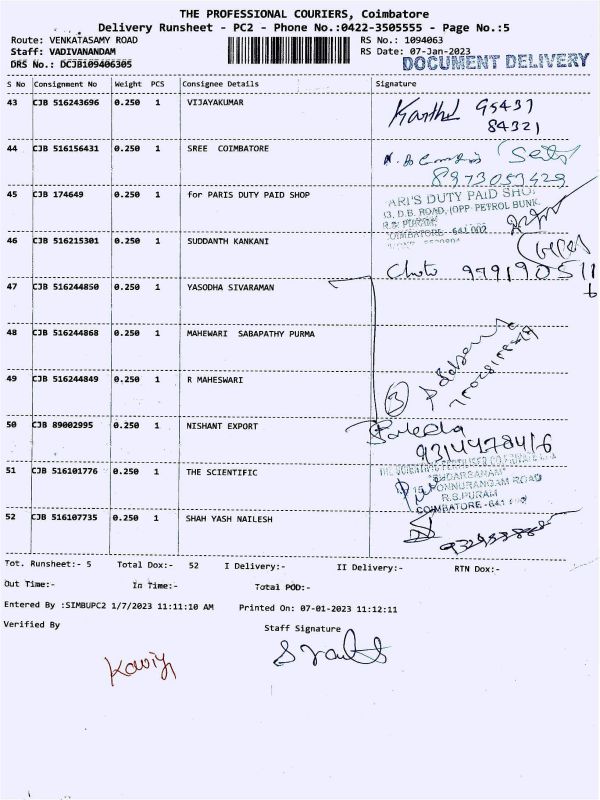 THE PROFESSIONAL COURIERS, Coimbatore
Delivery Runsheet - PC2 - Phone No.:0422-3505555 - Page No.:5
Route: VENKATASAMY ROAD RS No.: 1094063
Staff: VADIVANANDAM RS Date: 07-Jan-2023
DRS No.: DCJB109406305 DOCUMENT DELIVERY
S No Consignment No Weight PCS Consignee Details Signature
43 CJB 516243696 0.250 1 VIJAYAKUMAR
84321
44 CJB 516156431 0.250 1 SREE COIMBATORE
8973053429
45 CJB 174649 0.250 1 for PARIS DUTY PAID SHOP
ARI'S DUTY PAID SHO
13, D.B. ROAD, (OPP- PETROL BUNK.
R.S. PURAM,
COIMBATORE - 641 002
46 CJB 516215301 0.250 1 SUDDANTH KANKANI
47 CJB 516244850 0.250 1 YASODHA SIVARAMAN
48 CJB 516244868 0.250 1 MAHEWARI SABAPATHY PURMA
49 CJB 516244849 0.250 1 R MAHESWARI
3
50 CJB 89002995 0.250 1 NISHANT EXPORT
51 CJB 516101776 0.250 1 THE SCIENTIFIC
"SUDARSANAM"
15, PONNURANGAM ROAD
R.S.PURAM
COIMBATORE - 641
52 CJB 516107735 0.250 1 SHAH YASH NAILESH
Tot. Runsheet:- 5 Total Dox:- 52 I Delivery:- II Delivery:- RTN Dox:-
Out Time:- In Time:- Total POD:-
Entered By :SIMBUPC2 1/7/2023 11:11:10 AM Printed On: 07-01-2023 11:12:11
Verified By Staff Signature